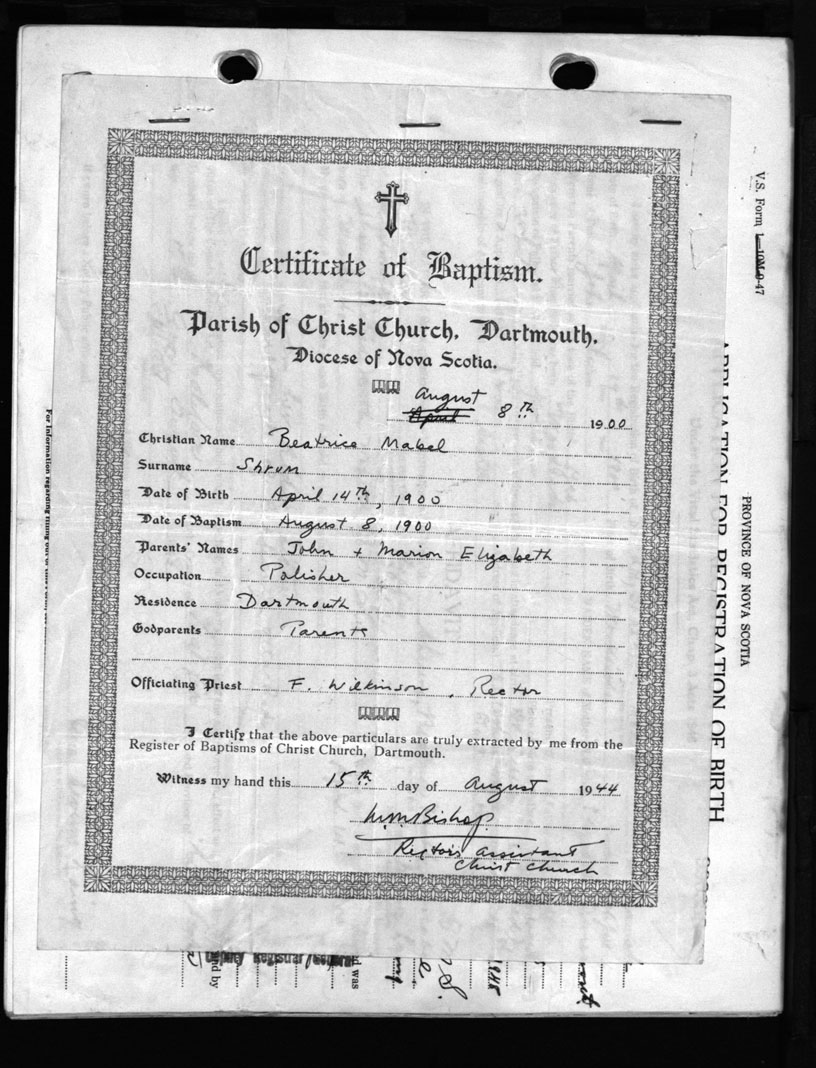 Certificate of Baptism.
Parish of Christ Church, Dartmouth.
Diocese of Nova Scotia.
August
April 8th 1900
Christian Name Beatrice Mabel
Surname Shrum
Date of Birth April 14th, 1900
Date of Baptism August 8, 1900
Parents' Names John + Marion Elizabeth
Occupation Polisher
Residence Dartmouth
Godparents Parents
Officiating Priest F. Wilkinson, Rector
I Certify that the above particulars are truly extracted by me from the
Register of Baptisms of Christ Church, Dartmouth.
Witness my hand this 15th day of August 1944
W.M. Bishop
Rector's assistant
Christ Church
V.S. Form 1—10M-9-47
PROVINCE OF NOVA SCOTIA
APPLICATION FOR REGISTRATION OF BIRTH
For information regarding filling out of this